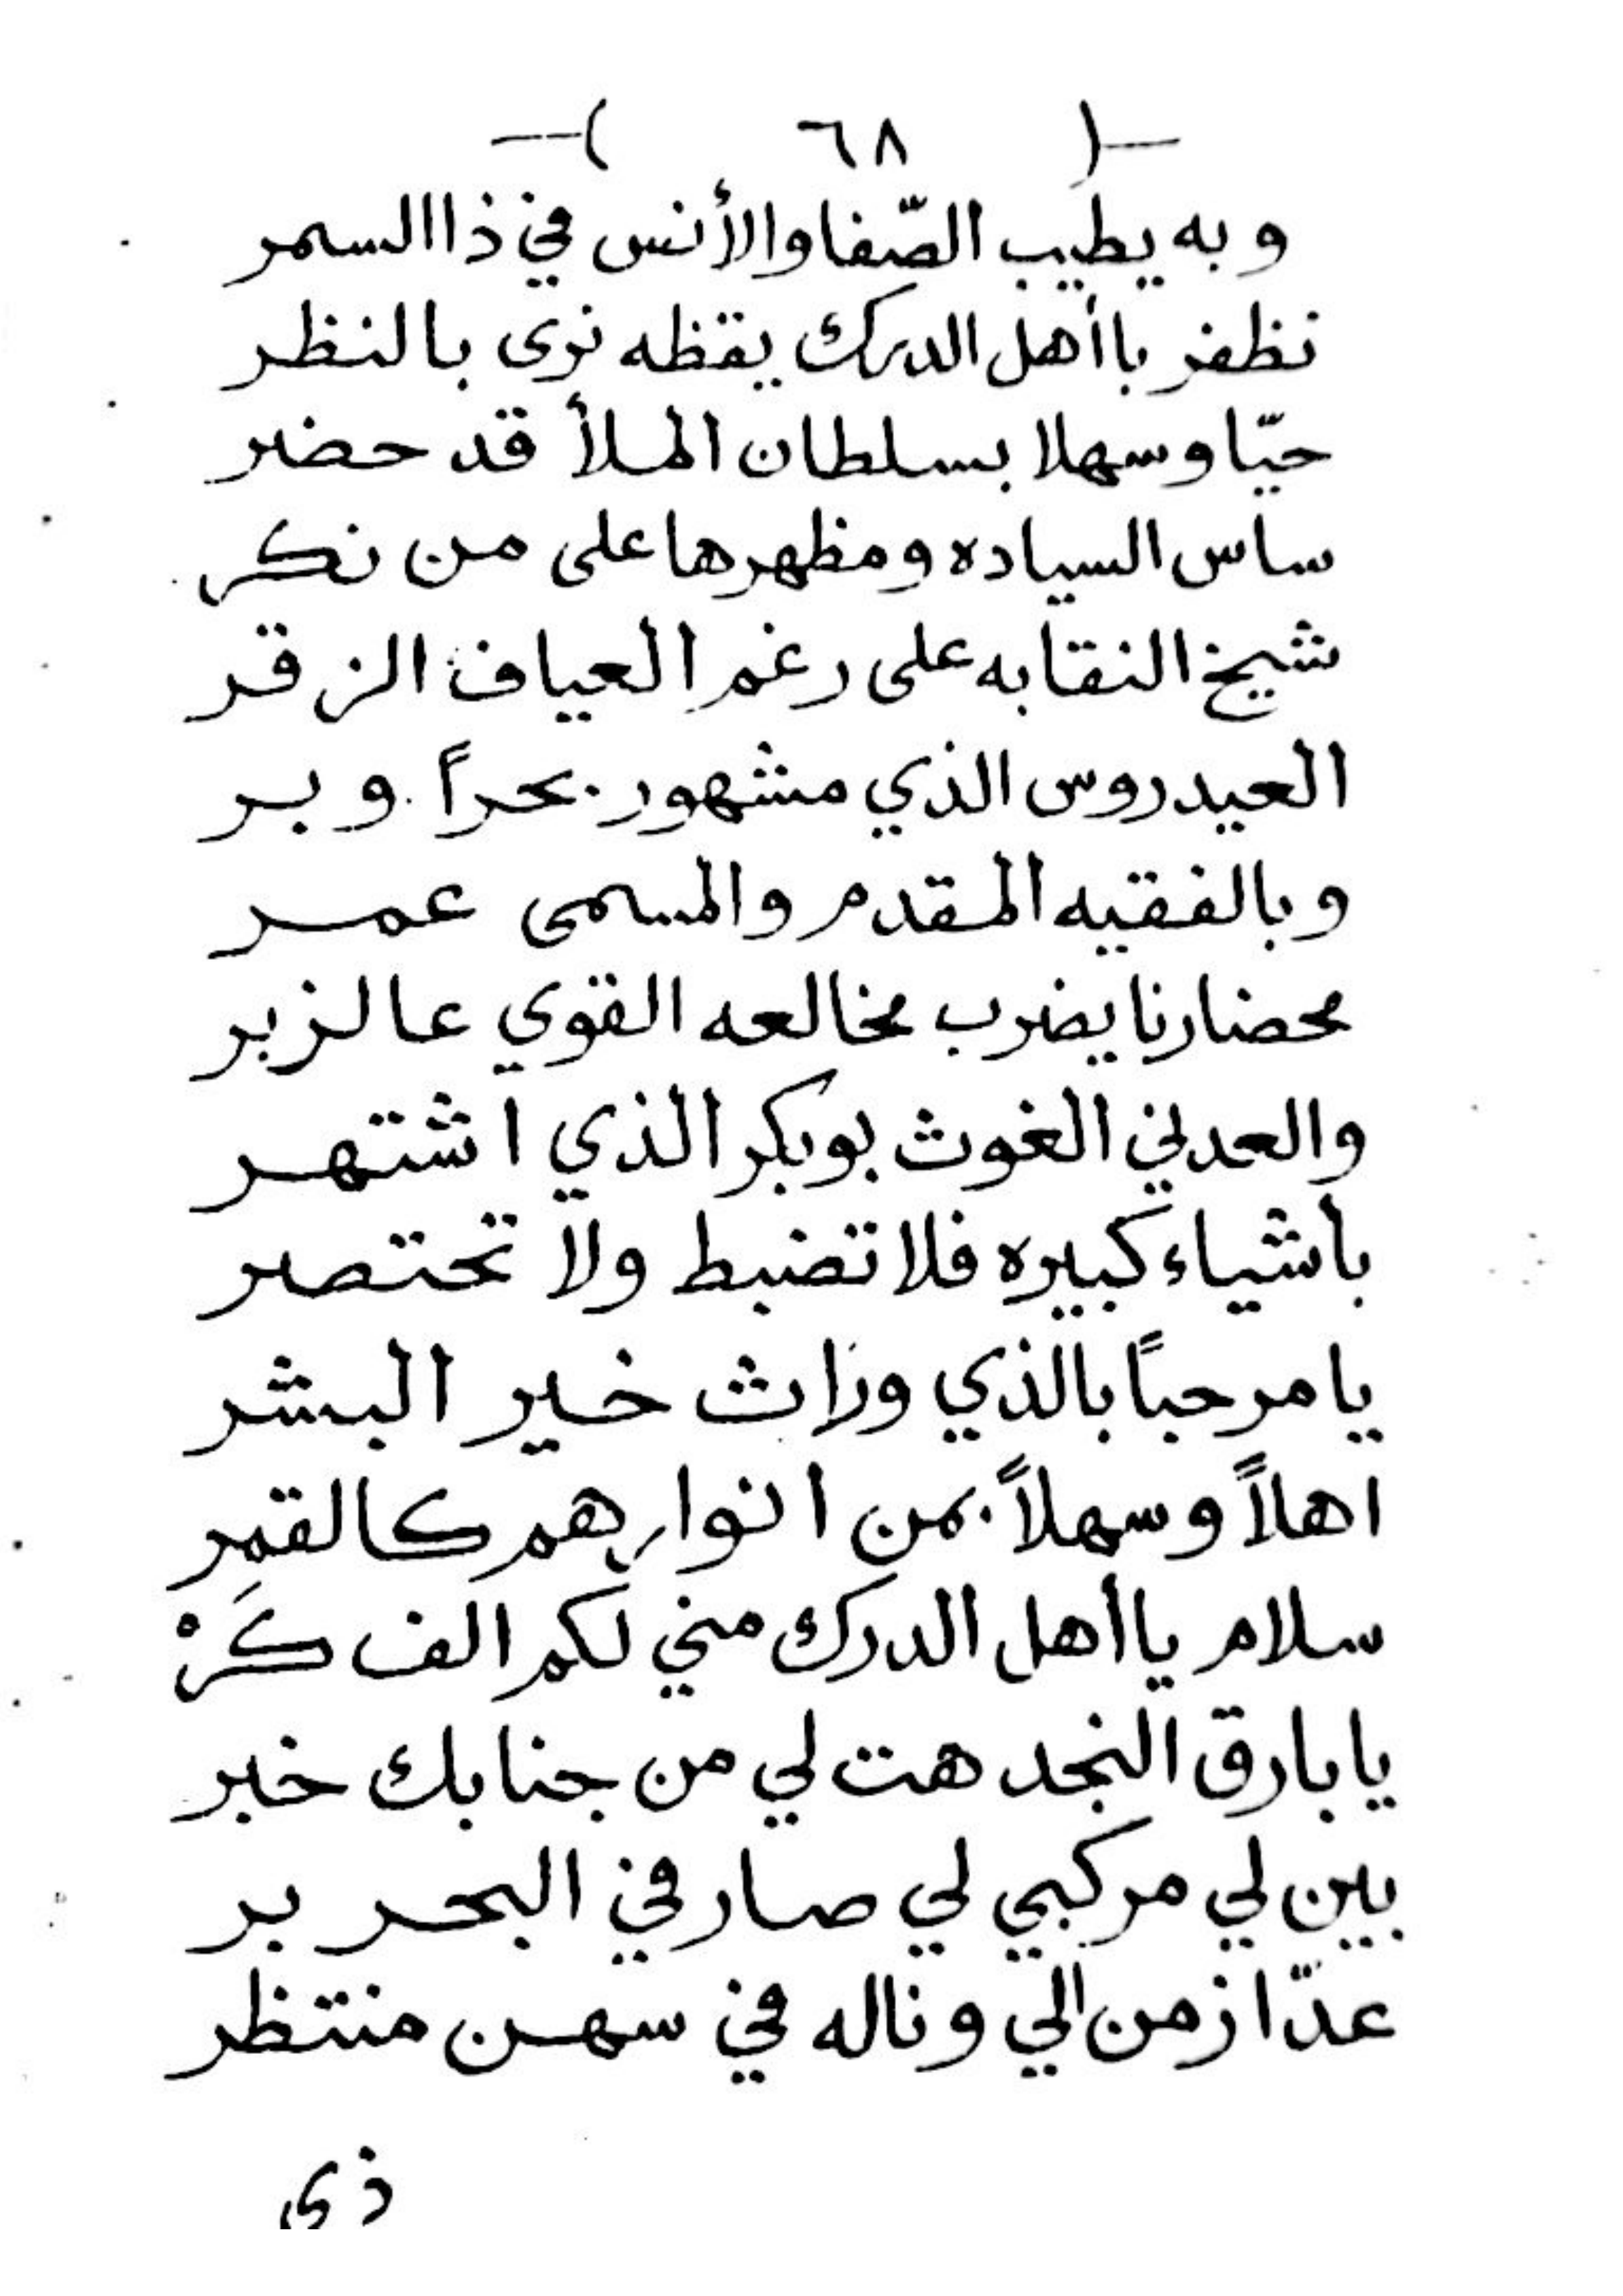 —( ٦٨ )—
وبه يطيب الصّفا والأنس في ذا السمر
نظفر باأهل الدرك يقظه نرى بالنظر
حيّا وسهلا بسلطان الملأ قد حضر
ساس السياده ومظهرها على من نكر
شيخ النقابه على رغم العياف الزقر
العيدروس الذي مشهور بحراً وبر
وبالفقيه المقدم والمسمى عمر
محضارنا يضرب مخالعه القوي عالزبر
والعدني الغوث بوبكر الذي اشتهر
بأشياء كبيره فلا تضبط ولا تحتصر
يا مرحباً بالذي وراث خير البشر
اهلاً وسهلاً بمن انوارهم كالقمر
سلام ياأهل الدرك مني لكم الف كَرْ
يا بارق النجد هت لي من جنابك خبر
بين لي مركبي لي صار في البحر بر
عدّا زمن الي وناله في سهن منتظر
ذى